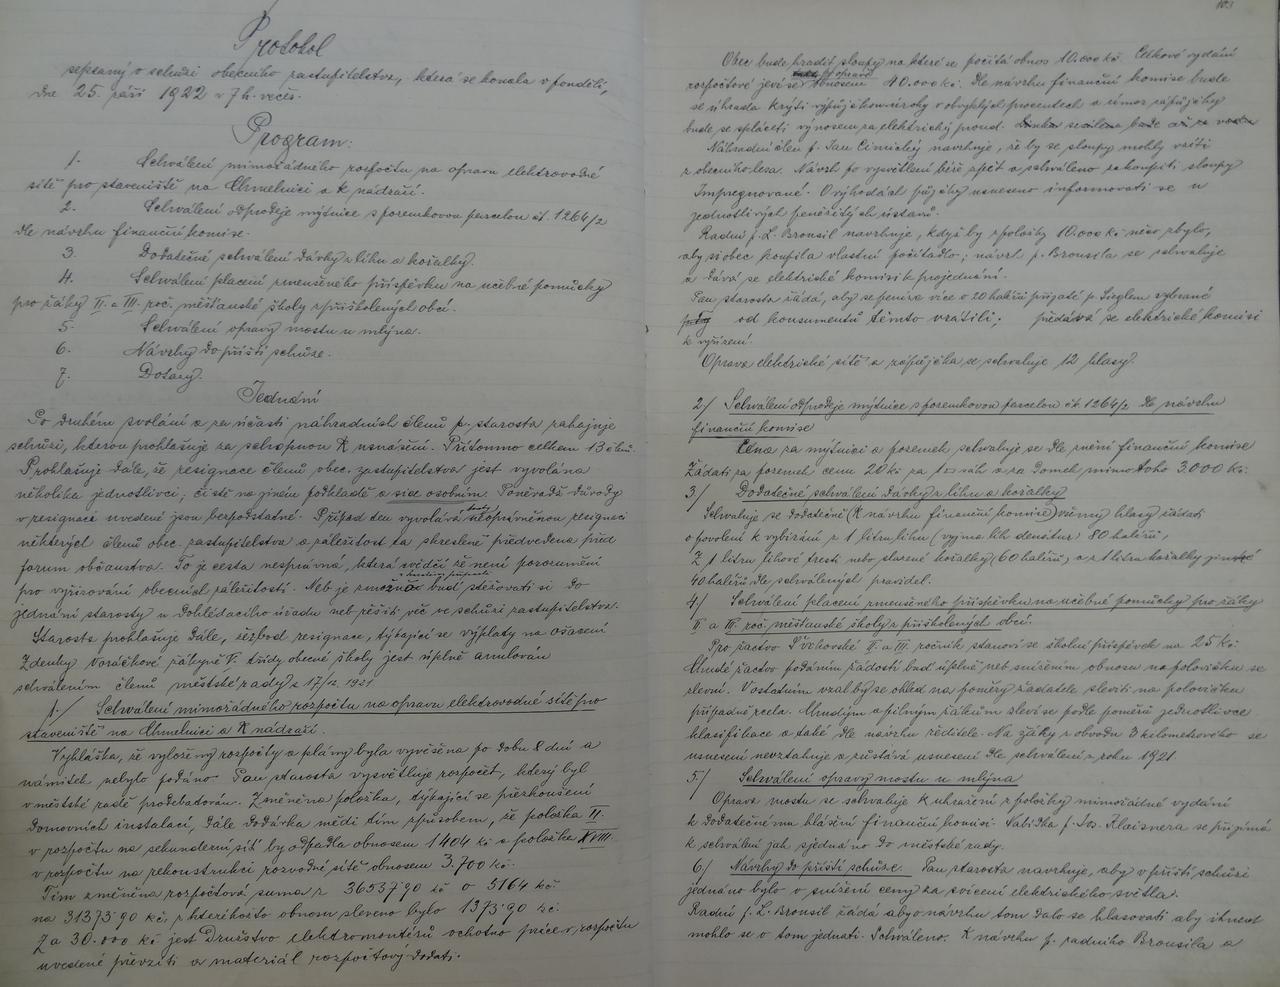 Protokol
sepsaný o schůzi obecního zastupitelstva, která se konala v pondělí,
dne 25. září 1922 v 7 h. večer.
Program:
1. Schválení mimořádného rozpočtu na opravu elektrovodné
sítě pro staveniště na Chmelnici a k nádraží.
2. Schválení odprodeje mýtnice s pozemkovou parcelou čt. 1264/2
dle návrhu finanční komise.
3. Dodatečné schválení dávky z lihu a kořalky.
4. Schválení placení zmenšeného příspěvku na učebné pomůcky
pro žáky II. a III. roč. měšťanské školy z přiškolených obcí.
5. Schválení opravy mostu u mlýna.
6. Návrhy do příští schůze.
7. Dotazy.
Jednání
Po druhém svolání a za účasti náhradních členů p. starosta zahajuje
schůzi, kterou prohlašuje za schopnou k usnášení. Přítomno celkem 13 členů.
Prohlašuje dále, že resignace členů obec. zastupitelstva jest vyvolána
několika jednotlivci, čistě na jiném podkladě a sice osobním. Poněvadž důvody
v resignaci uvedené jsou bezpodstatné. Případ ten vyvolává tedy neoprávněnou resignaci
některých členů obec. zastupitelstva a záležitost ta zkresleně předvedena před
forum občanstva. To je cesta nesprávná, která svědčí že není porozumění
pro vyřizování obecních záležitostí. Neb je možno buď stěžovati si do
jednání starosty u dohlédacího úřadu neb řešiti věc ve schůzi zastupitelstva.
Starosta prohlašuje dále, že bod resignace, týkající se výplaty na ošacení
Zdenky Voráčkové žákyně V. třídy obecné školy jest úplně anulován
schválením členů městské rady z 17/12. 1921.
1./ Schválení mimořádného rozpočtu na opravu elektrovodné sítě pro
staveniště na Chmelnici a k nádraží.
Vyhláška, že vyložený rozpočty a plány byla vyvěšena po dobu 8 dní a
námitek nebylo podáno. Pan starosta vysvětluje rozpočet, který byl
v městské radě prodebatován. Změněna položka, týkající se přezkoušení
domovních instalací, dále dodávka mědi tím způsobem, že položka II.
v rozpočtu na sekunderní síť by odpadla obnosem 1404 kč a položka XVIII.
v rozpočtu na rekonstrukci rozvodné sítě obnosem 3.700 kč.
Tím změněna rozpočtová suma z 36537.90 kč o 5164 kč.
na 31373.90 kč, z kteréhožto obnosu sleveno bylo 1373.90 kč.
Za 30.000 kč jest Družstvo elektromontérů ochotno práce v rozpočtu
uvedené převzíti a materiál rozpočtový dodati.
Obec bude hraditi sloupy na které se počítá obnos 10.000 kč. Celkové vydání
rozpočtové jeví se opravou obnosem 40.000 kč. Dle návrhu finanční komise bude
se úhrada krýti výpůjčkou úroky v obvyklých procentech a úmor zápůjčky
bude se spláceti výnosem za elektrický proud.
Náhradní člen p. Jan Cimický navrhuje, že by se sloupy mohly vzíti
z obecního lesa. Návrh po vysvětlení béře zpět a schváleno zakoupiti sloupy
Impregnované. O výhodách půjčky usneseno informovati se u
jednotlivých peněžitých ústavů.
Radní p. L. Brousil navrhuje, když by z položky 10.000 kč něco zbylo,
aby si obec koupila vlastní počítadlo; návrh p. Brousila se schvaluje
a dává se elektrické komisi k projednání.
Pan starosta žádá, aby se peníze více o 20 haléřů přijaté p. Sieglem vybrané
od konsumentů těmto vrátili; předává se elektrické komisi
k vyřízení.
Oprava elektrické sítě a zápůjčka se schvaluje 12 hlasy.
2./ Schválení odprodeje mýtnice s pozemkovou parcelou čk. 1264/2 dle návrhu
finanční komise
Cena za mýtnici a pozemek schvaluje se dle znění finanční komise
Žádati za pozemek cenu 20 kč za 1 □ sáh a za domek mimo toho 3.000 kč.
3./ Dodatečné schválení dávky z lihu a kořalky
Schvaluje se dodatečně (k návrhu finanční komise) všemy hlasy žádati
o povolení k vybírání z 1 litru lihu (vyjma líh denatur. 80 haléřů,
Z 1 litru lihové tresti nebo slazené kořalky (60 haléřů, a z 1 litru kořalky jiné
40 haléřů dle schválených pravidel.
4./ Schválení placení zmenšeného příspěvku na učebné pomůcky pro žáky
II a III. roč. měšťanské školy z přiškolených obcí.
Pro žactvo Síchovské II. a III. ročník stanoví se školní příspěvek na 25 kč.
Chudé žactvo podáním žádosti buď úplně neb snížením obnosu na polovičku se
slevní. V ostatním vzal by se ohled na poměry žadatele sleviti na polovičku
případně zcela. Chudým a pilným žákům slevi se podle poměrů jednotlivce
klasifikace a také dle návrhu ředitele. Na žáky z obvodu 3 kilometkového se
usnesení nevztahuje a zůstává usnesení dle schválení z roku 1921.
5./ Schválení opravy mostu u mlýna
Oprava mostu se schvaluje k uhražení z položky mimořádné vydání
k dodatečnému hlášení finanční komisi. Nabídka p. Jos. Klaisnera se přijímá
k schválení jak sjednáno do městské rady.
6./ Návrhy do příští schůze. Pan starosta navrhuje, aby v příští schůzi
jednáno bylo o snížení ceny za svícení elektrického světla.
Radní p. L. Brousil žádá aby o návrhu tom dalo se hlasovati aby ihned
mohlo se o tom jednati. Schváleno. K návrhu p. radního Brousila a